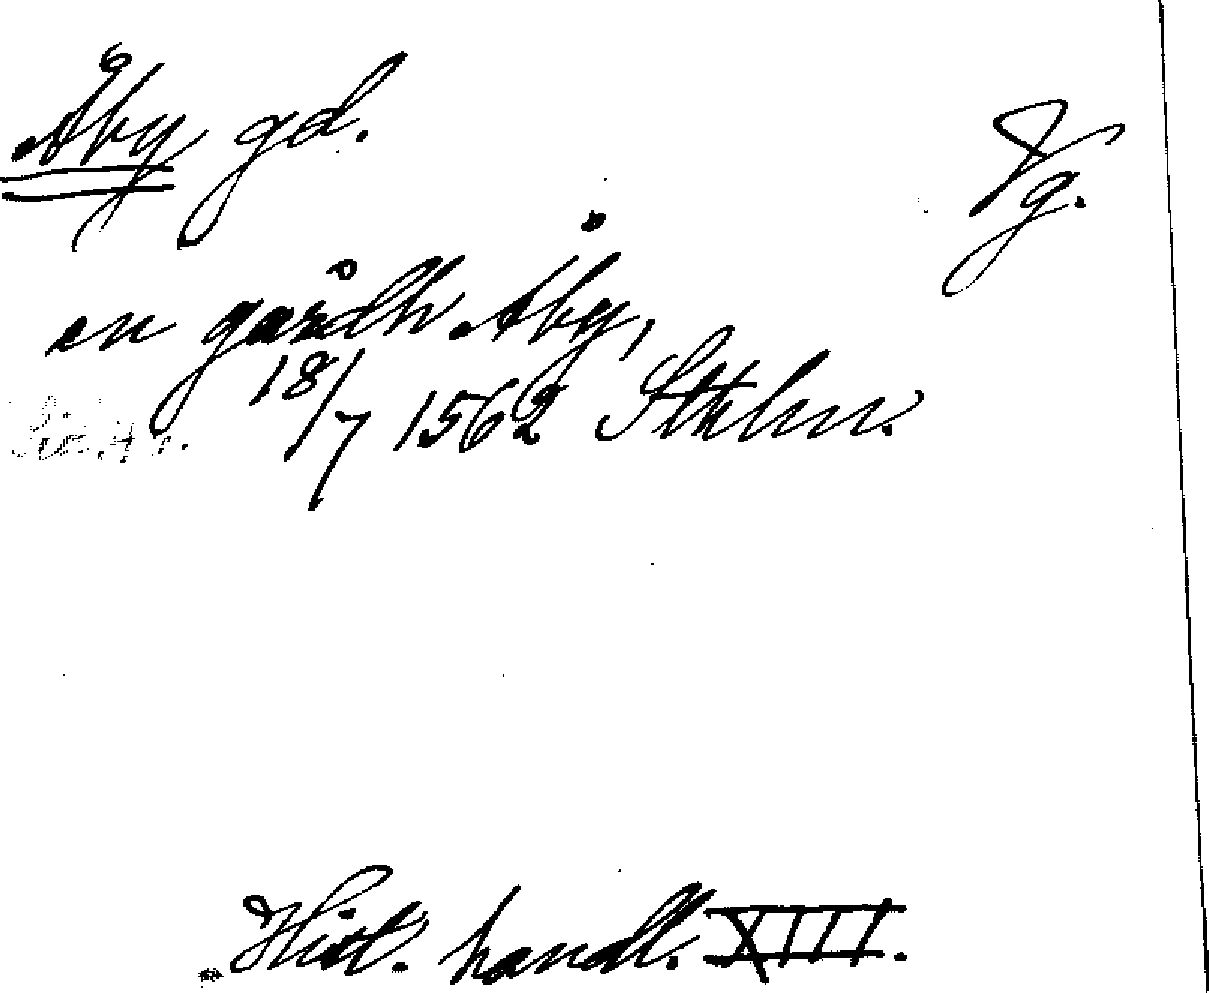 Åby gd. Vg.
en gårdh Åby,
18/7 1562 Sthlm.
Hist. handl. XIII.